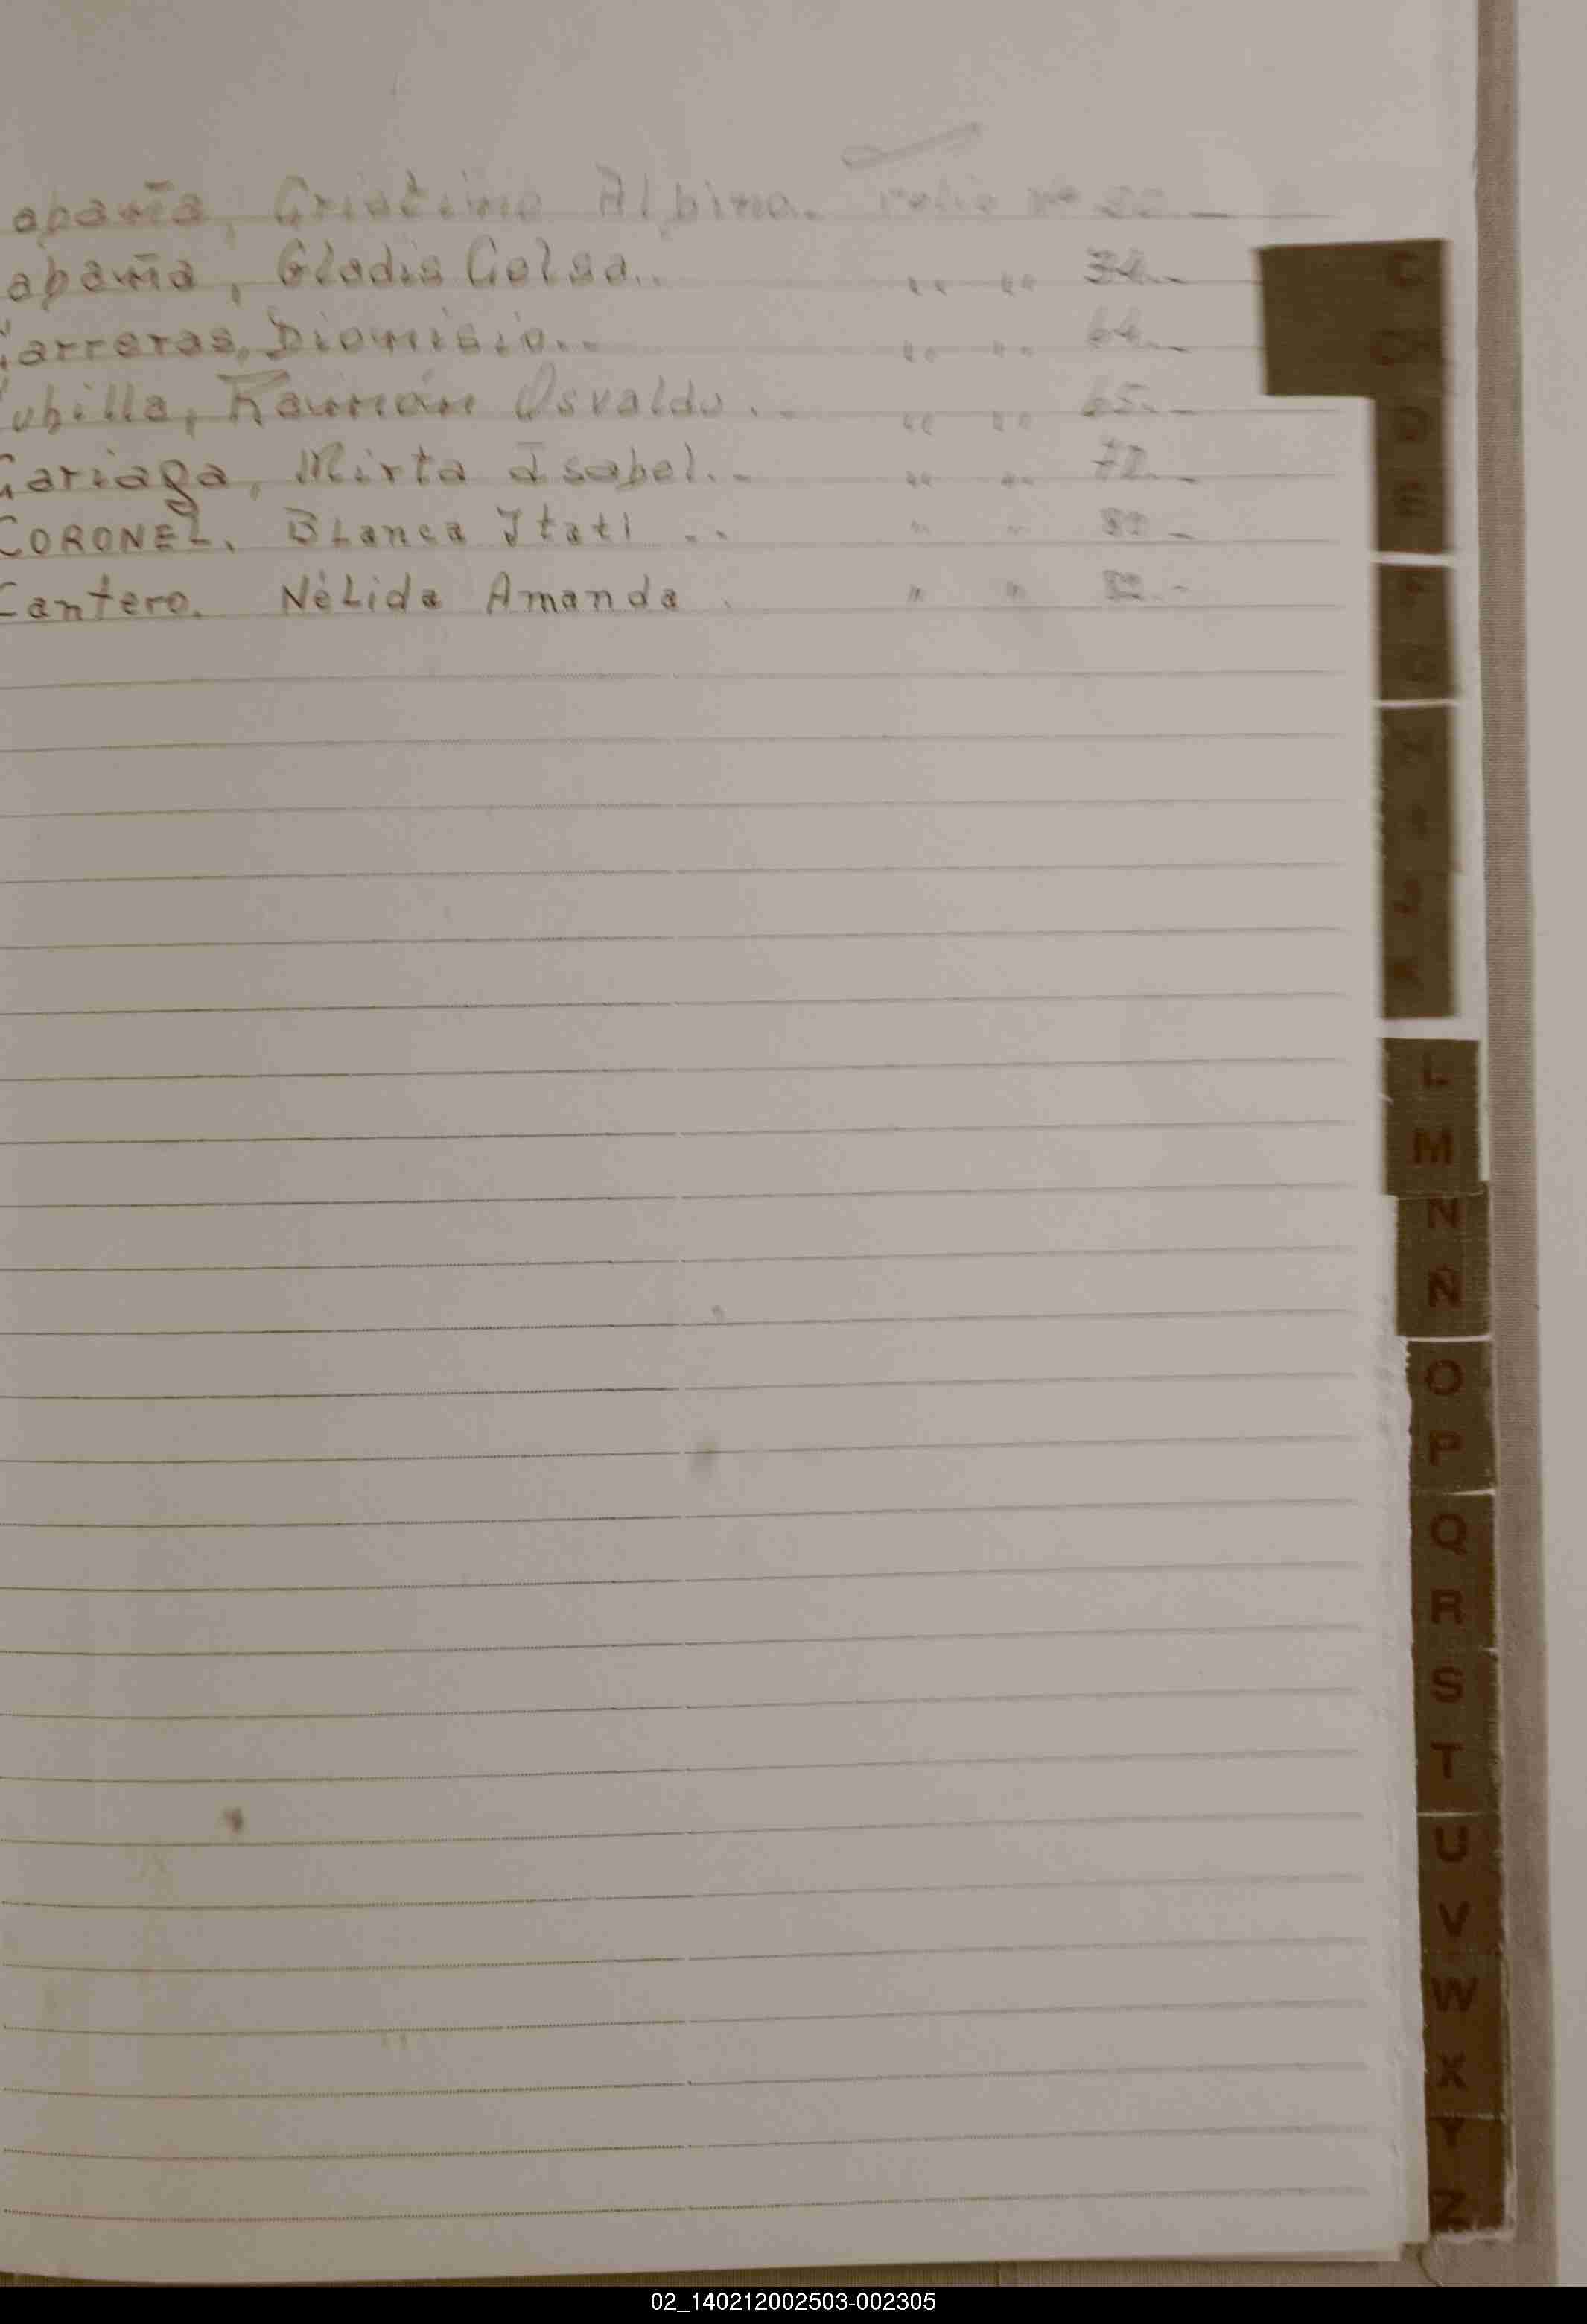 apaña, Cristino Albino. Folio Nº
apaña, Gladis Celsa.. " " 34.-
Carreras, Dionisio.. " " 64.-
Cubilla, Ramón Osvaldo.- " " 65.-
Cariaga, Mirta Isabel.- " " 72.-
CORONEL, Blanca Itati .. " "
Cantero. Nélida Amanda . " "
C
CH
D
E
F
G
L
M
N
Ñ
O
P
Q
R
S
T
U
V
W
X
Y
Z
02_140212002503-002305